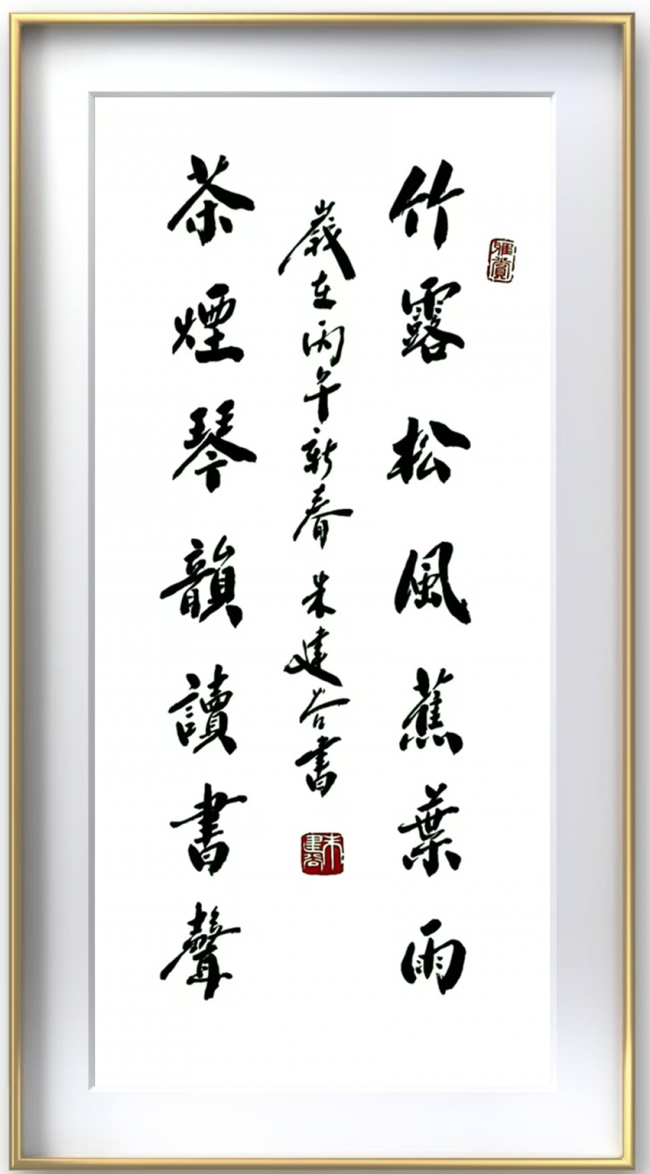 雅賞
竹露松風蕉葉雨
歲在丙午新春 朱建谷書
朱建谷
茶煙琴韻讀書聲